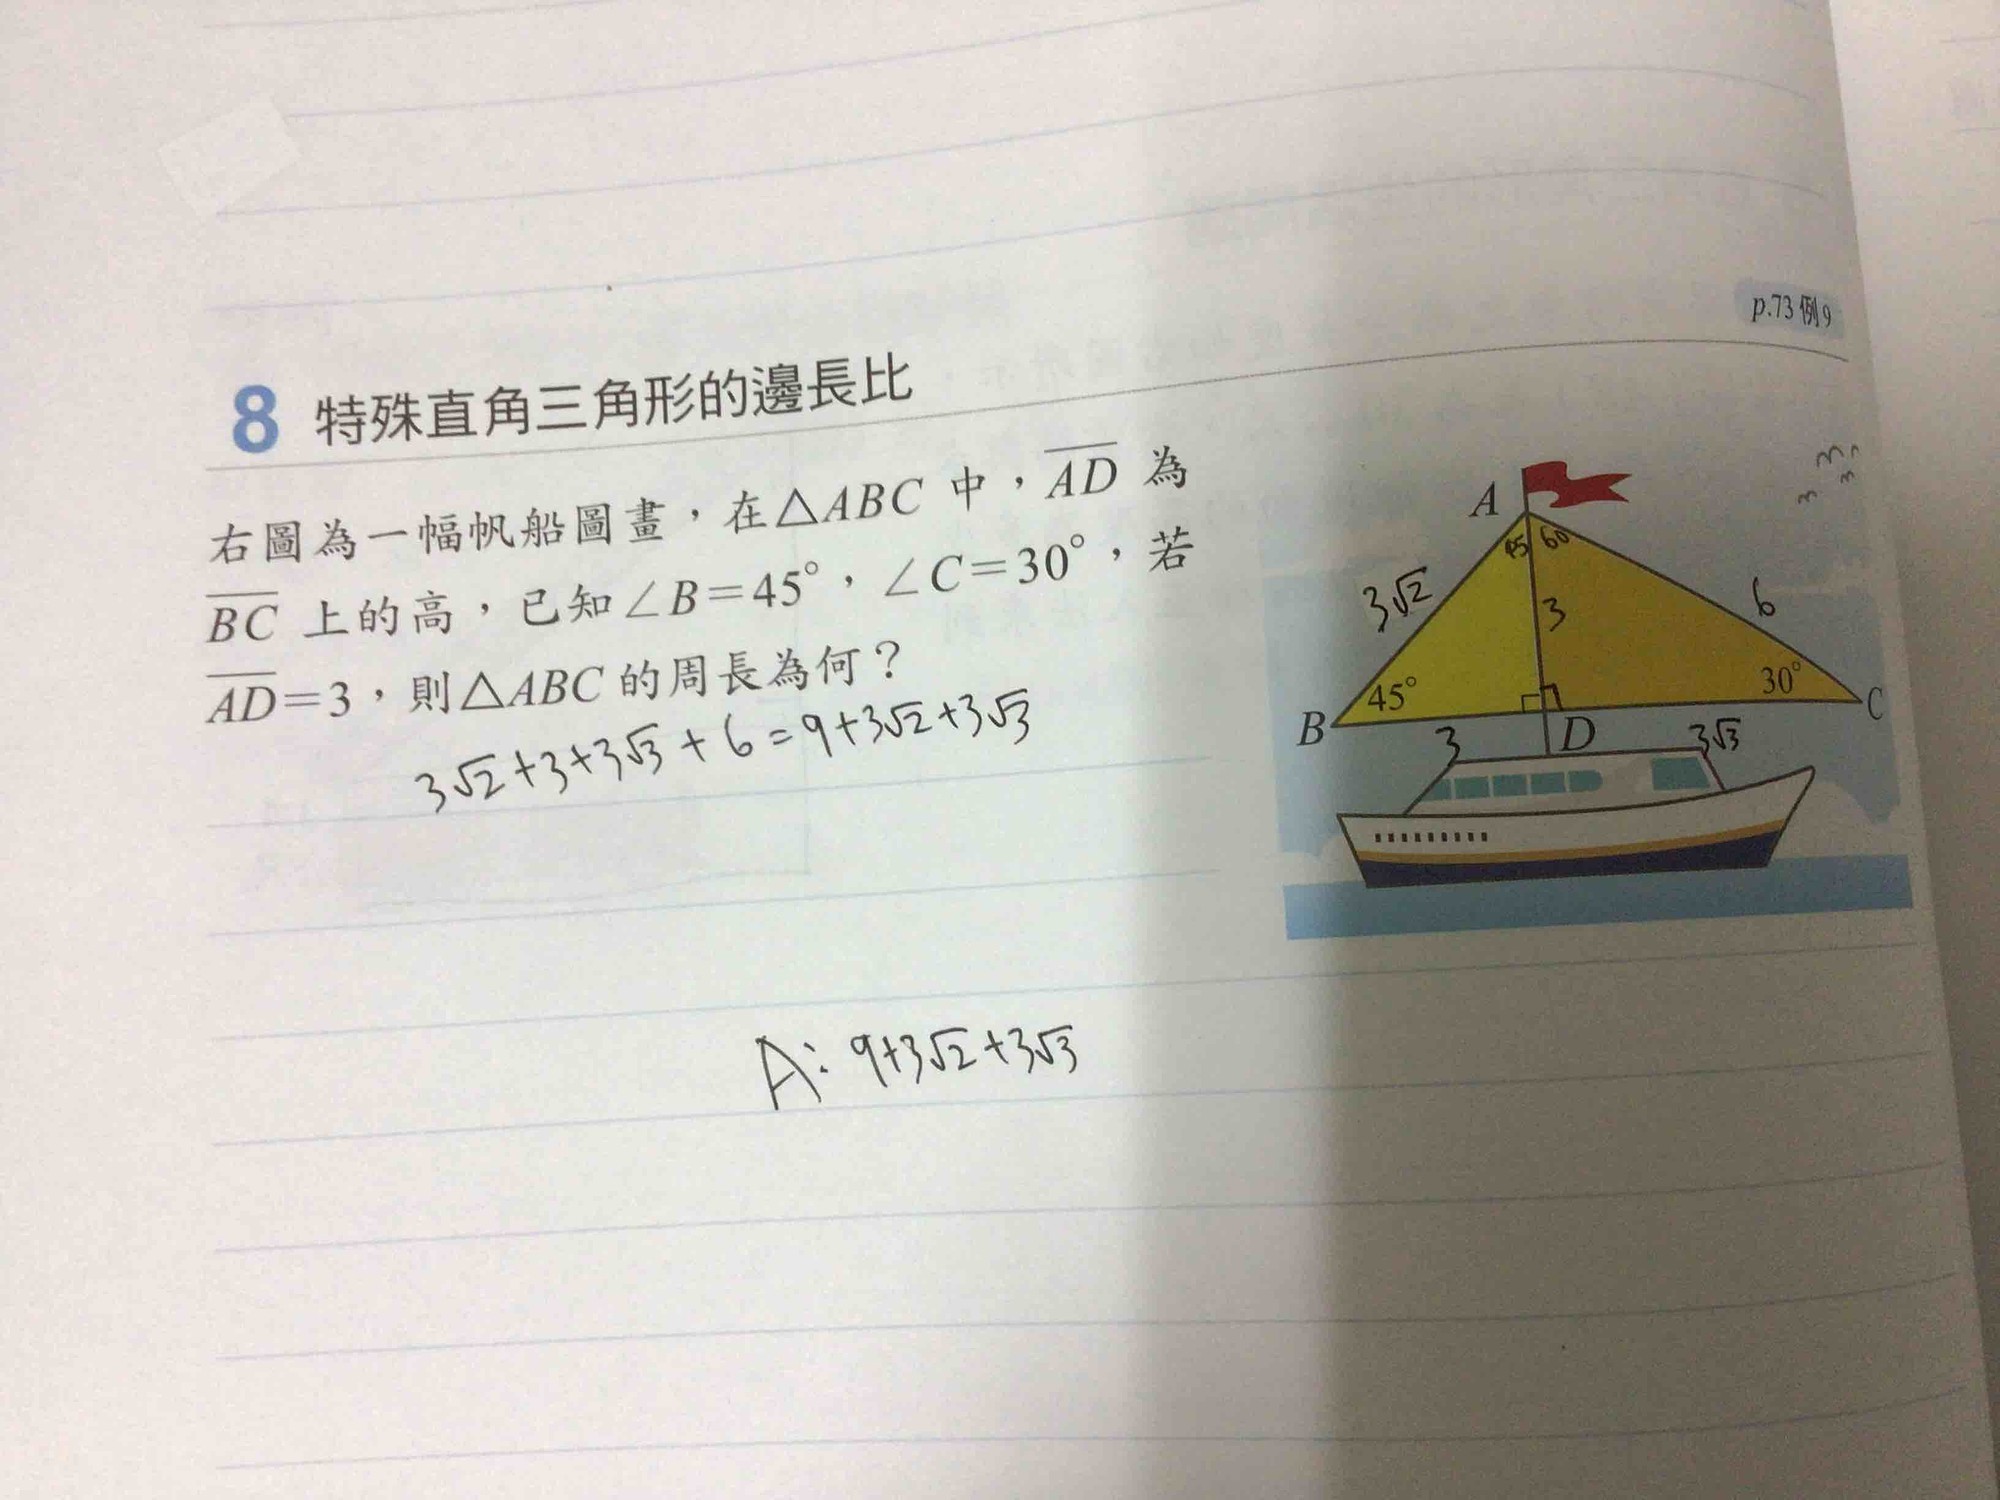 p.73 例9
8 特殊直角三角形的邊長比
右圖為一幅帆船圖畫，在△ABC 中，AD 為
BC 上的高，已知∠B=45°，∠C=30°，若
AD=3，則△ABC 的周長為何？
3√2+3+3√3+6=9+3√2+3√3
A
45 60
3√2
3
6
45°
30°
B
3
D
3√3
C
A: 9+3√2+3√3